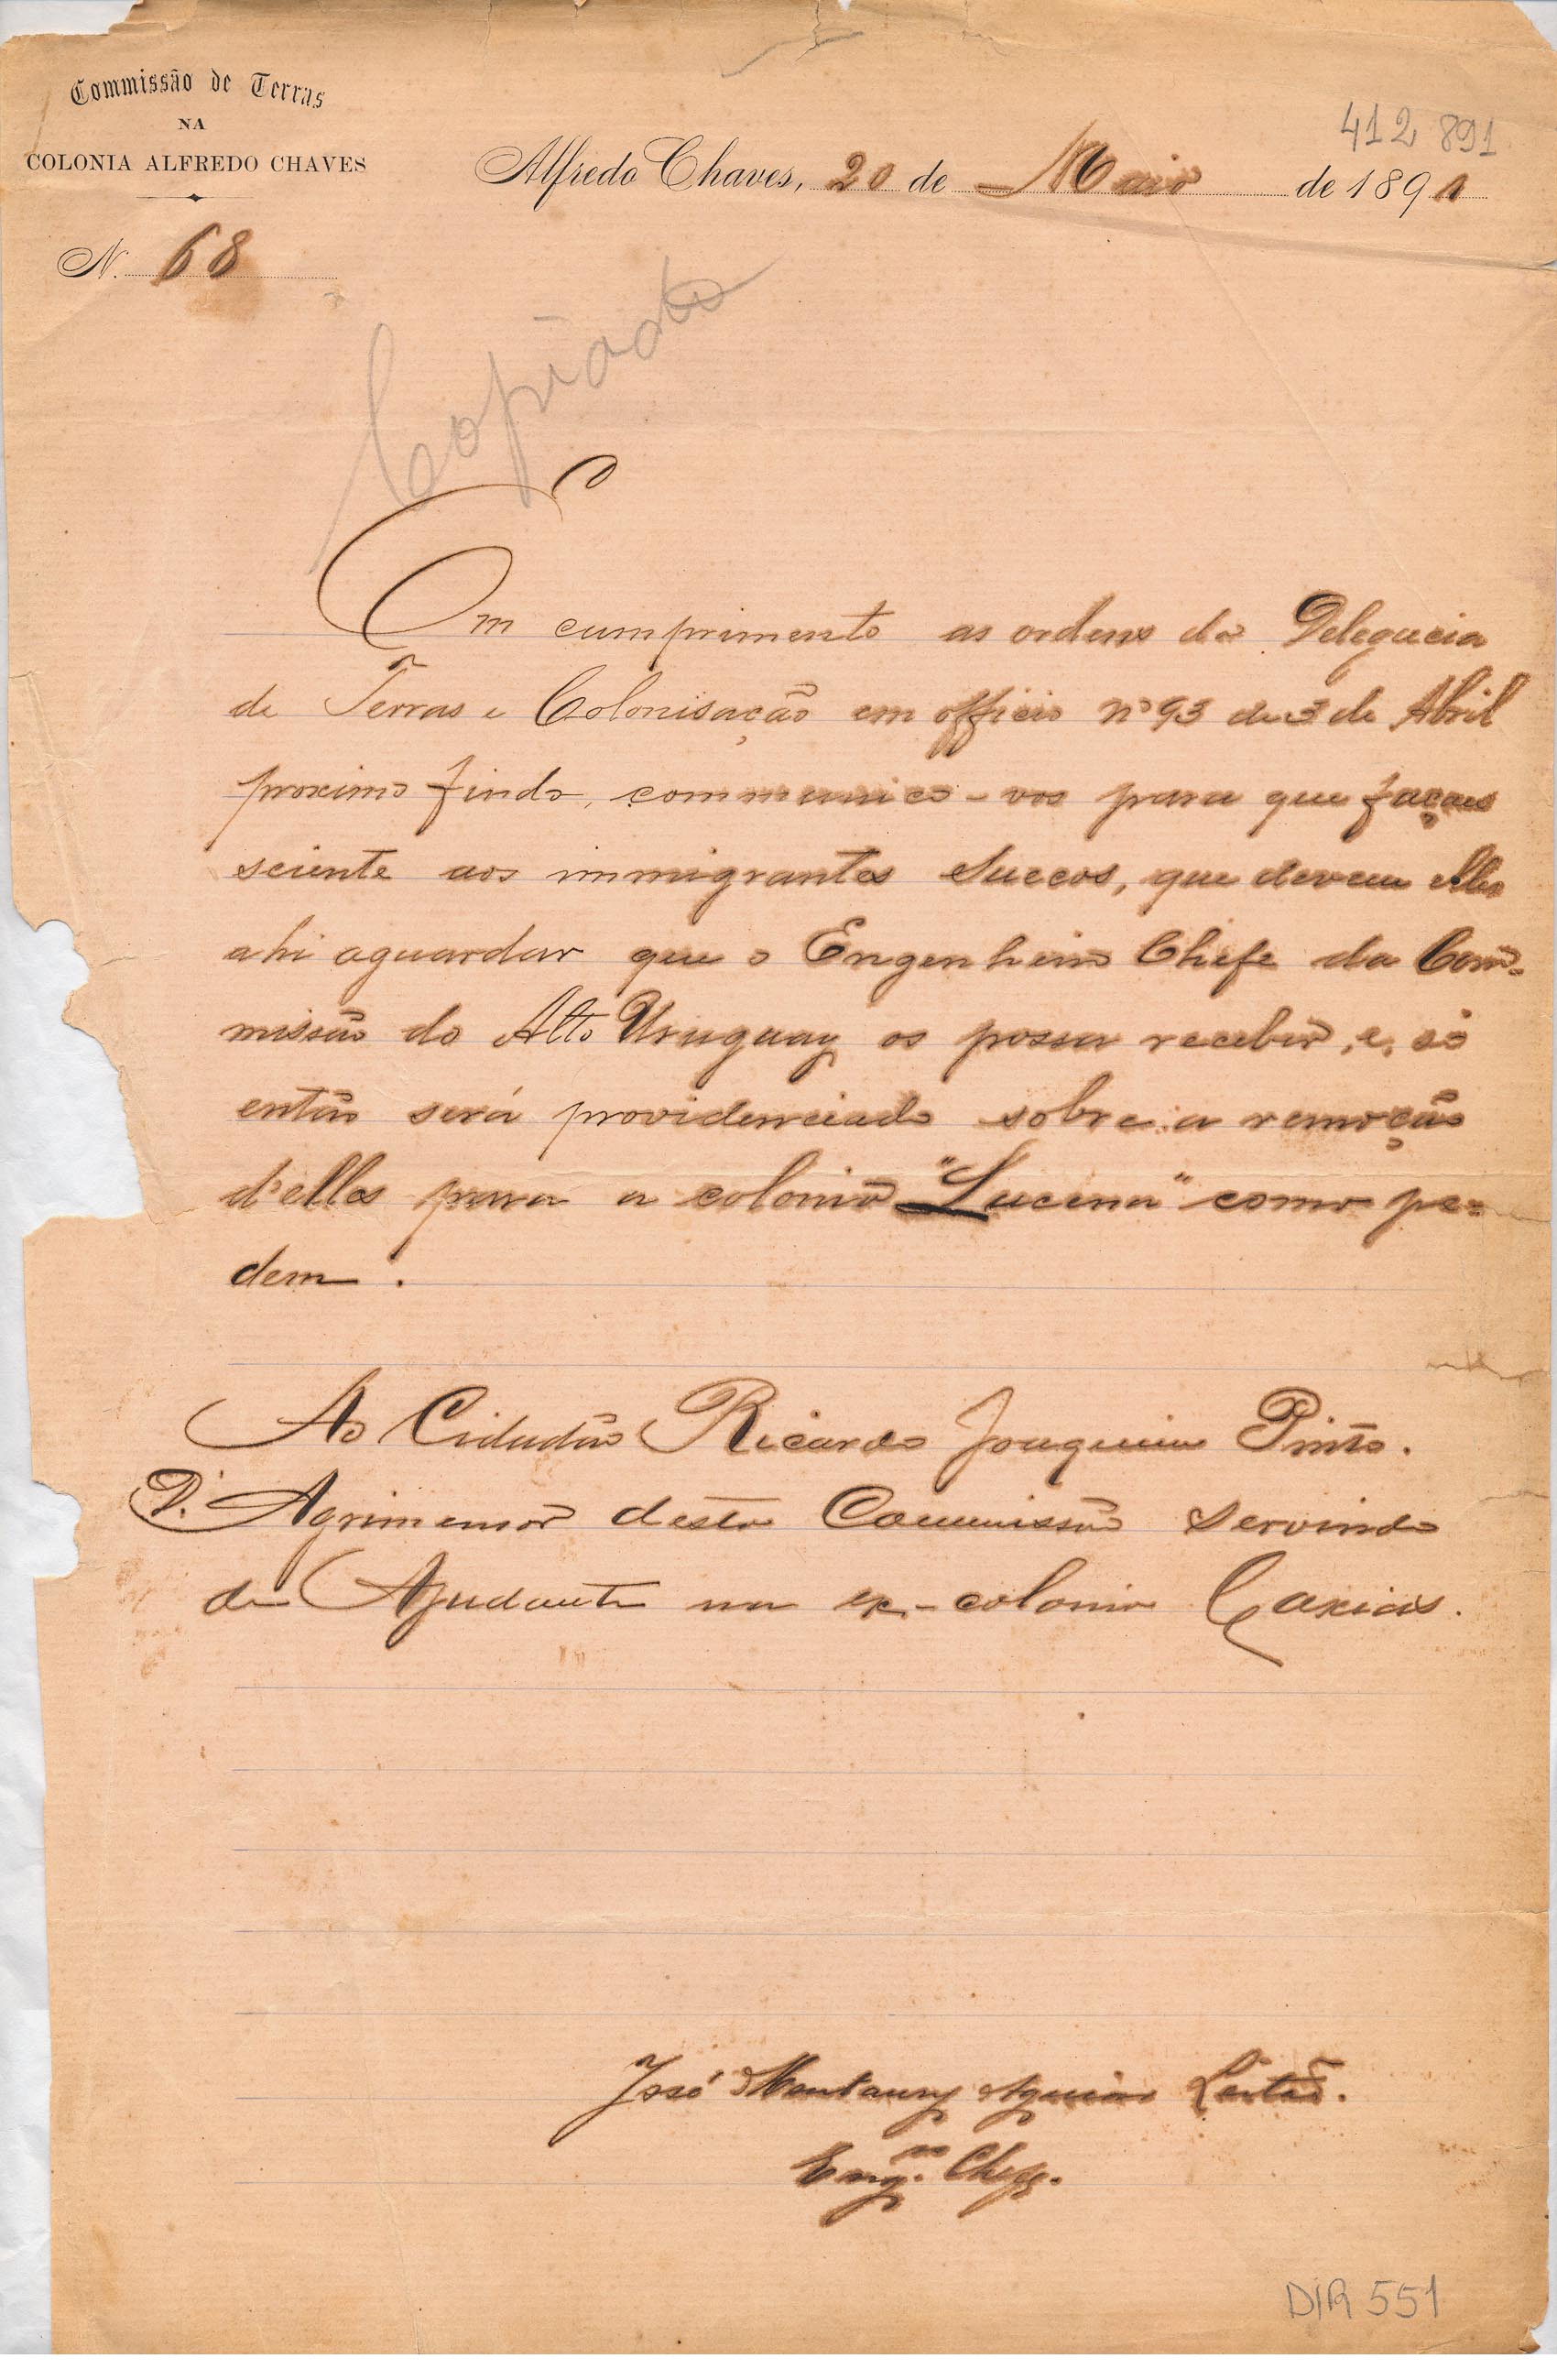 Commissão de Terras
NA
COLONIA ALFREDO CHAVES
412 891
Alfredo Chaves, 20 de Maio de 1891
N. 68
Copiado
Em cumprimento as ordens da Delegacia
de Terras e Colonisação em officio nº 93 de 3 de Abril
proximo findo, communico-vos para que façaes
sciente aos immigrantes Suecos, que devem elles
ahi aguardar que o Engenheiro Chefe da Com-
missão do Alto Uruguay os possa receber, e, só
então será providenciado sobre a remoção
d'elles para a colonia "Lucena" como pe-
dem.
Ao Cidadão Ricardo Joaquim Pinto.
D. Agrimensor desta Commissão servindo
de Ajudante na ex-colonia Caxias.
José Montaury Aguiar Leitão.
Engro. Chefe.
DIR 551